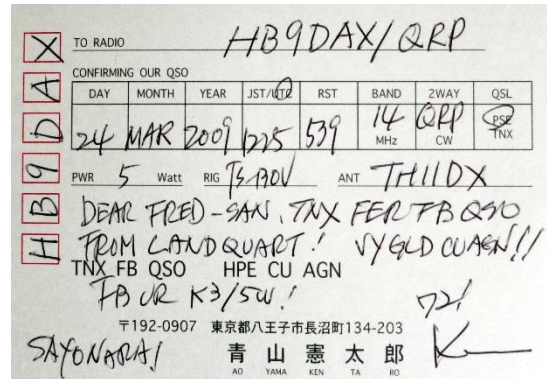 TO RADIO HB9DAX/QRP
CONFIRMING OUR QSO
DAY MONTH YEAR JST/UTC RST BAND 2WAY QSL
24 MAR 2009 1225 539 14 MHz QRP CW PSE TNX
PWR 5 Watt RIG TS-130V ANT TH11DX
DEAR FRED-SAN, TNX FER FB QSO
FROM LANDQUART! VY GLD CU AGN!!
TNX FB QSO HPE CU AGN
FB UR K3/5W! 72!
〒192-0907 東京都八王子市長沼町134-203
SAYONARA! 青山憲太郎
AO YAMA KEN TA RO
X
A
D
9
B
H